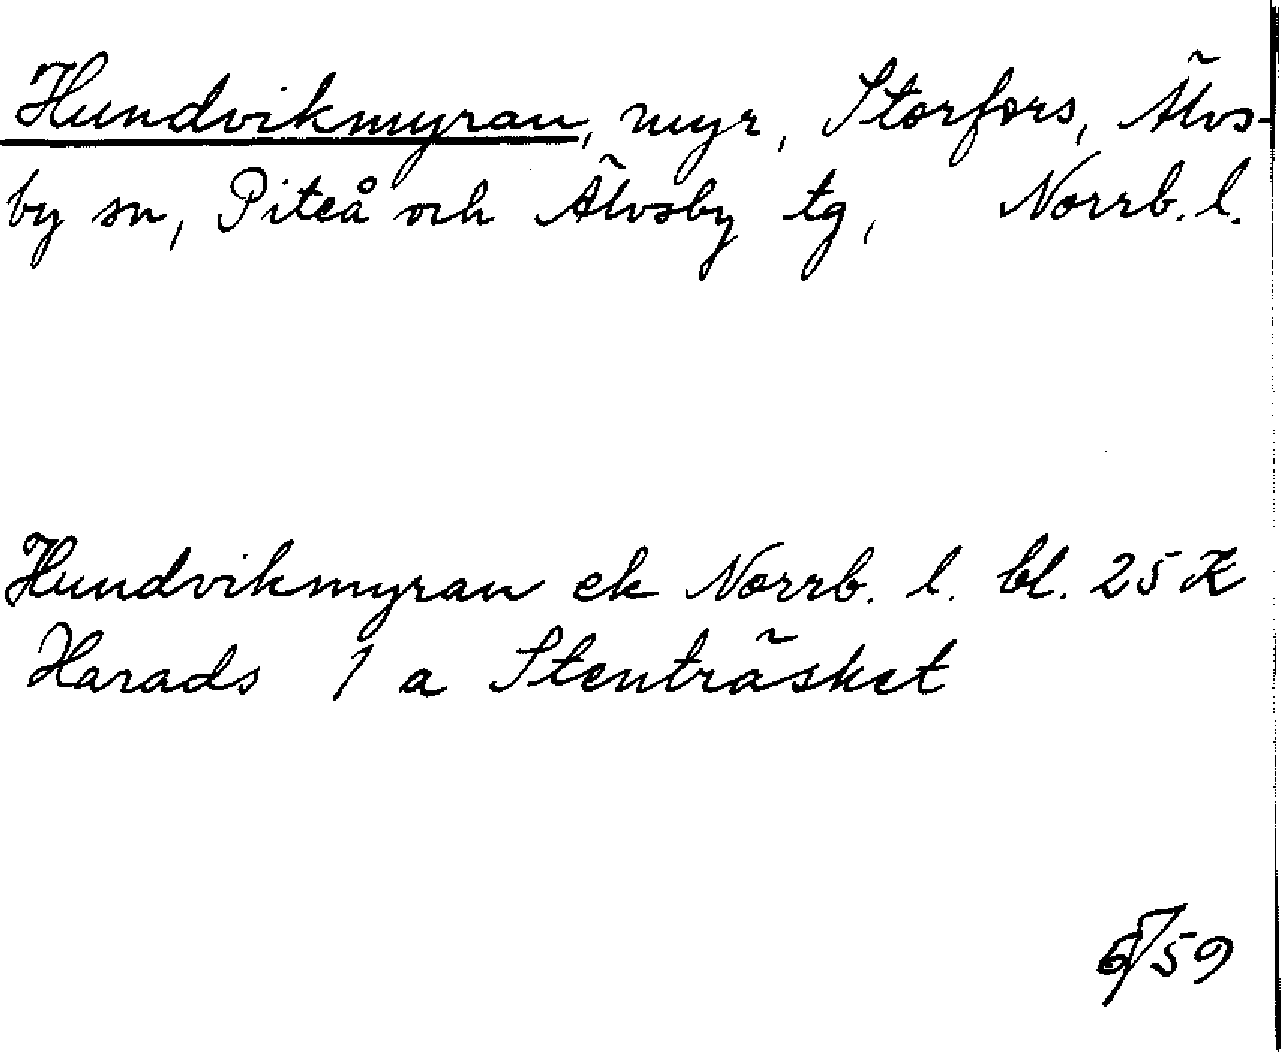 Hundvikmyran, myr, Storfors, Älvs-
by sn, Piteå och Älvsby tg, Norrb. l.
Hundvikmyran ek Norrb. l. bl. 25 K
Harads 1 a Stenträsket
59